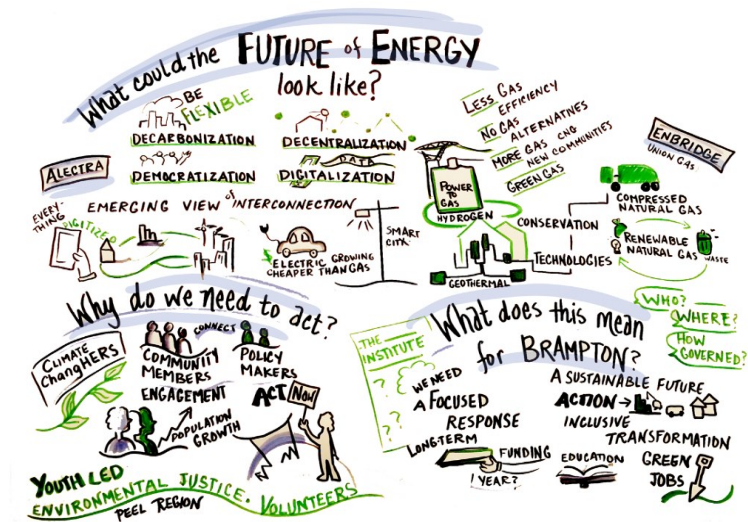 What could the FUTURE of ENERGY
look like?
BE
FLEXIBLE
DECARBONIZATION
DECENTRALIZATION
DEMOCRATIZATION
DATA
DIGITALIZATION
ALECTRA
EMERGING VIEW of INTERCONNECTION
EVERY-
THING
DIGITIZED
ELECTRIC GROWING
CHEAPER THAN GAS
SMART
CITY
LESS GAS
EFFICIENCY
NO GAS
ALTERNATIVES
MORE GAS CNG
NEW COMMUNITIES
GREEN GAS
POWER
TO
GAS
HYDROGEN
CONSERVATION
TECHNOLOGIES
GEOTHERMAL
ENBRIDGE
UNION GAS
COMPRESSED
NATURAL GAS
RENEWABLE
NATURAL GAS
WASTE
WHO?
WHERE?
HOW
GOVERNED?
Why do we need to act?
CLIMATE
ChangHERS
CONNECT
COMMUNITY
MEMBERS
ENGAGEMENT
POLICY
MAKERS
ACT NOW
POPULATION
GROWTH
YOUTH LED
ENVIRONMENTAL JUSTICE. VOLUNTEERS
PEEL REGION
What does this mean
for BRAMPTON?
THE
INSTITUTE
?
?
? ?
WE NEED
A FOCUSED
RESPONSE
LONG-TERM
FUNDING
1 YEAR?
A SUSTAINABLE FUTURE
ACTION →
INCLUSIVE
TRANSFORMATION
EDUCATION
GREEN
JOBS